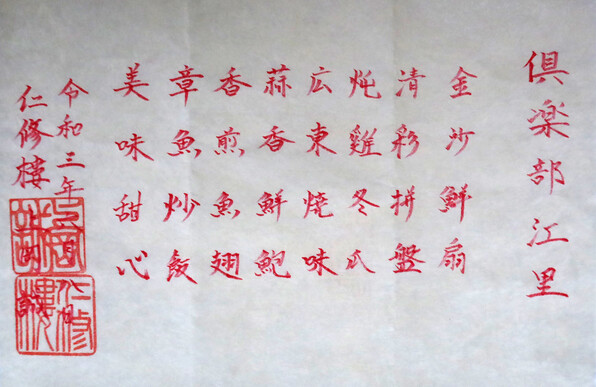 倶楽部江里
金沙鮮扇
清彩拼盤
炖雞冬瓜
広東焼味
蒜香鮮鮑
香煎魚翅
章魚炒飯
美味甜心
令和三年
仁修樓
仁修樓